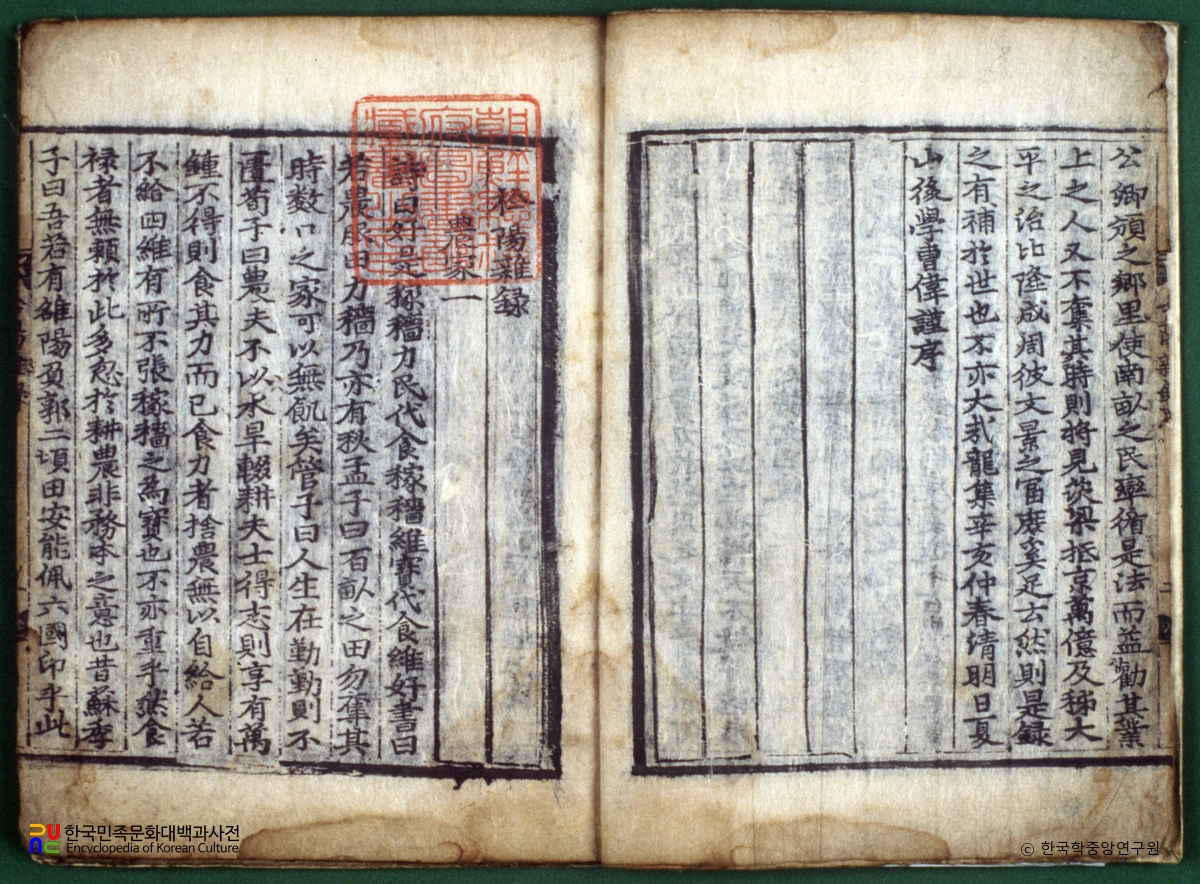 公卿頒之鄕里使南畝之民率循是法而益勸其業
上之人又不奪其時則將見茨梁抵京萬億及秭大
平之治比隆成周彼文景之富庶奚足云然則是録
之有補於世也不亦大哉龍集辛亥仲春淸明日夏
山後學曹偉謹序
衿陽雜録
農家一
詩曰好是稼穡力民代食稼穡維寶代食維好書曰
若農服田力穡乃亦有秋孟子曰百畝之田勿奪其
時数口之家可以無飢矣管子曰人生在勤勤則不
匱荀子曰農夫不以水旱輟耕夫士得志則享有萬
鍾不得則食其力而已食力者捨農無以自給人若
不給四維有所不張稼穡之為寶也不亦重乎然食
禄者無賴於此多忽於耕農非務本之意也昔蘇季
子曰吾若有雒陽負郭二頃田安能佩六國印乎此
한국민족문화대백과사전
Encyclopedia of Korean Culture
© 한국학중앙연구원